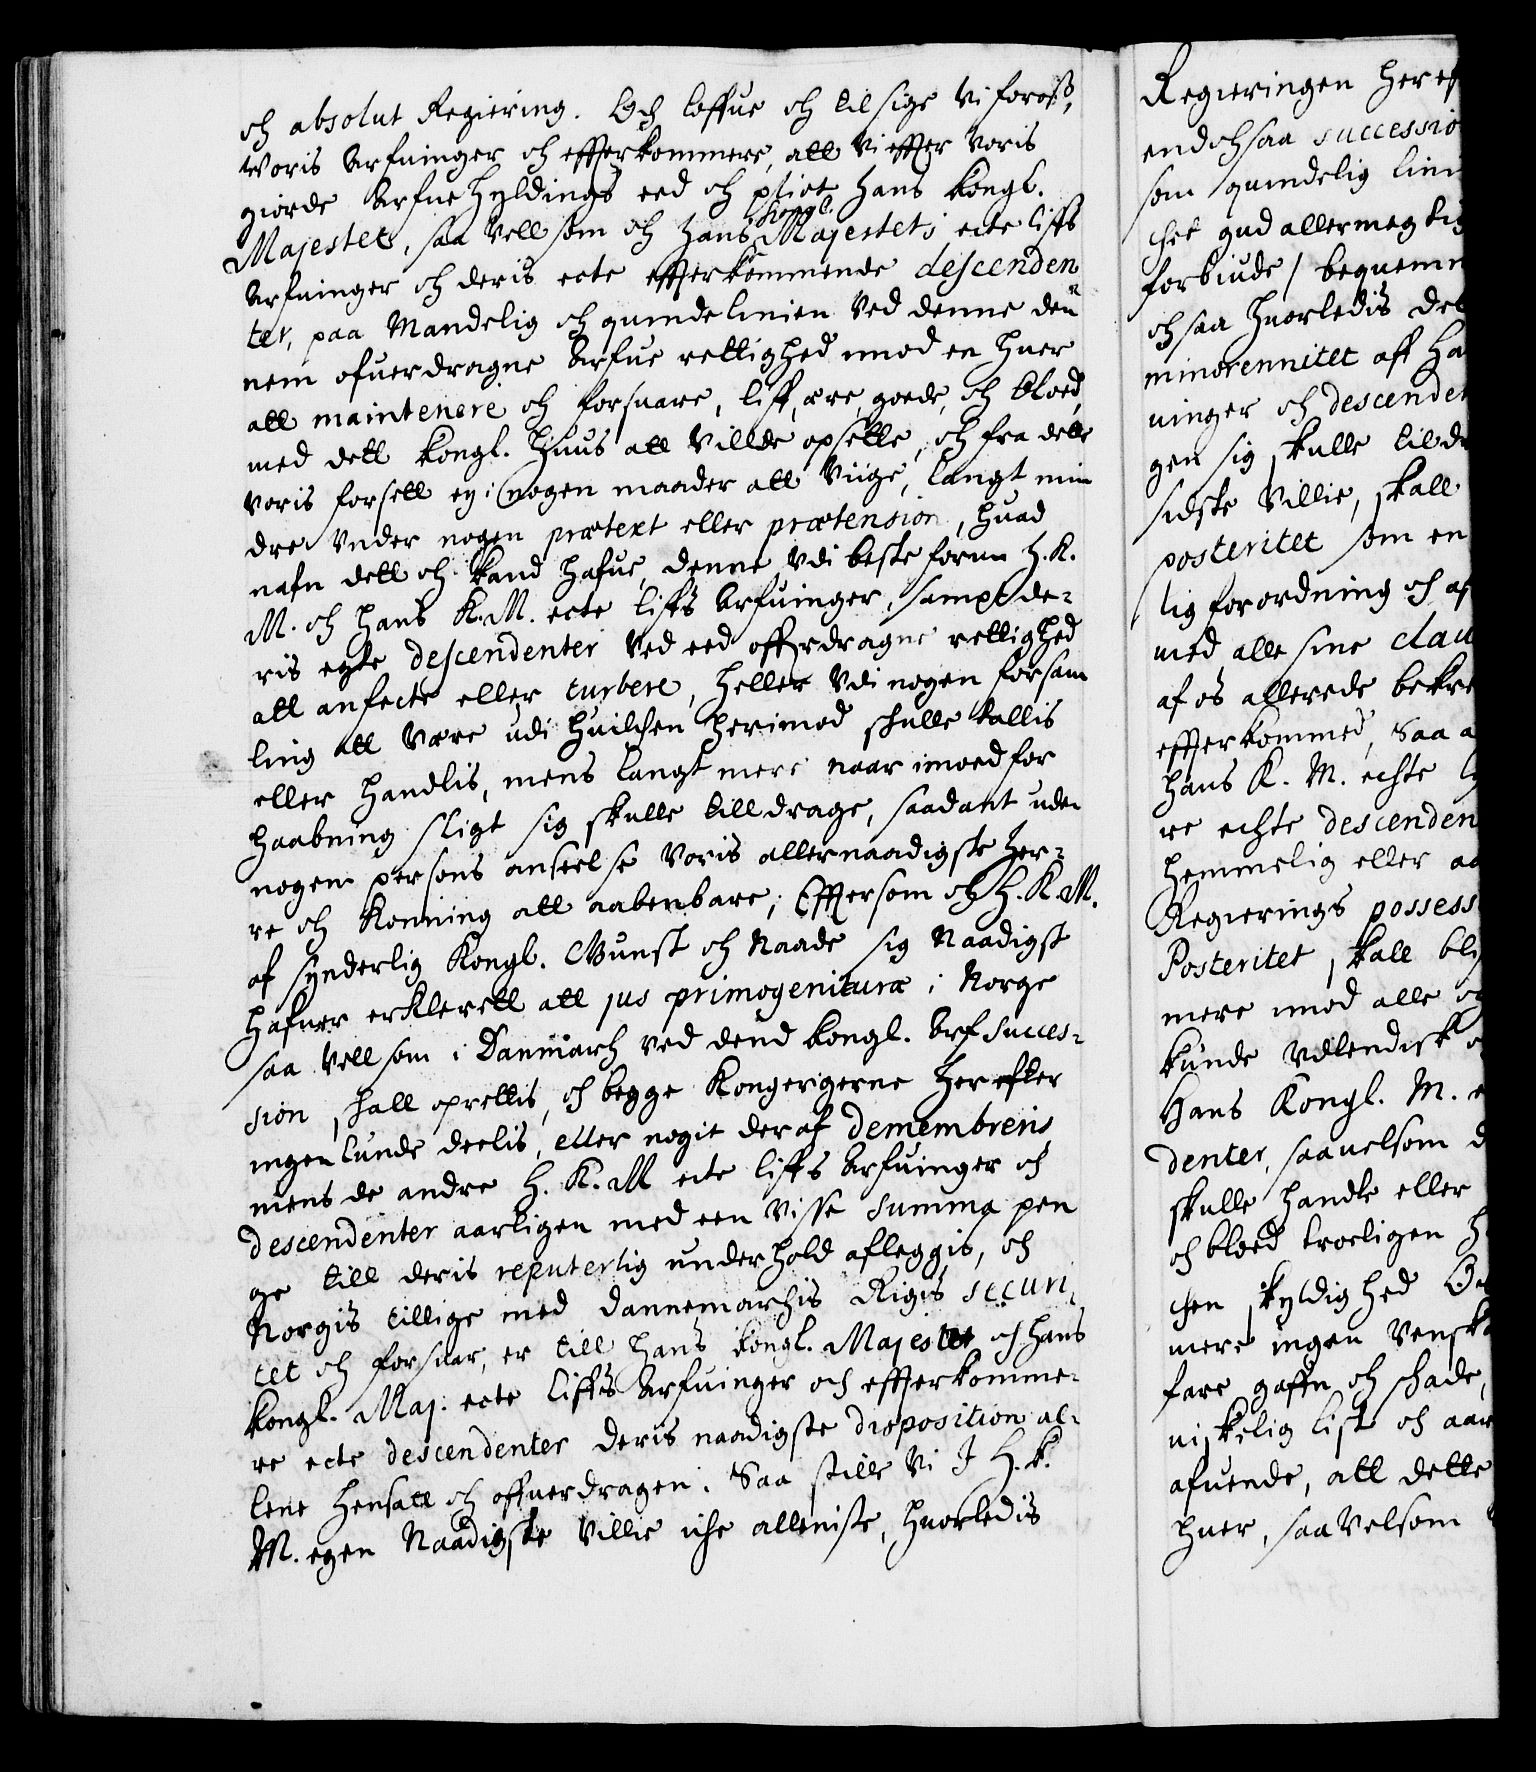 och absolut Regiering. Och loffue och tilsige Vi for oß,
Woris Arfuinger och effterkommere, att Vi effter Voris
giorde Arfue hyldings eed och plict hans Kongl.
Majestet, saa Vell som och hans Kongl. Majestets ecte liffs
Arfuinger och deris ecte effterkommende descenden
ter, paa Mandelig och quinde linien Ved denne den
nem ofuerdragne Arfue rettighed imod en huer
att maintenere och forsuare, liff, ære, goede, och bloed,
med dett Kongl. Huus att Villde opsette, och fra dette
Voris forsett ey i nogen maader att Viige, langt min
dre Vnder nogen prætext eller prætension, huad
nafn dett och kand hafue, denne Vdi beste form H. K.
M. och hans K. M. ecte liffs Arfuinger, sampt de-
ris egte descendenter Ved eed offuerdragne rettighed
att anfecte eller turbere, heller Vdi nogen forsam
ling att Være udi huilchen herimod schulle tallis
eller handlis, mens langt mere naar imoed for
haabning sligt sig skulle tilldrage, saadant uden
nogen persons anseelse Voris allernaadigste Her-
re och Konning att aabenbare; Efftersom och H. K. M.
af synderlig Kongl. Gunst och Naade sig Naadigst
hafuer erklerett att jus primogenituræ i Norge
saa Vell som i Danmarch ved dend Kongl. Arf succes-
sion, skall oprettis, och begge Kongerigerne her efter
ingenlunde deelis, eller nogit deraf demembreris,
mens de andre H. K. M ecte liffs Arfuinger och
descendenter aarligen med een Visse summa pen
ge till deris reputerlig underhold afleggis, och
Norgis tillige med Dannemarchis Rigis securi
tet och forsuar, er till hans Kongl. Majestet och hans
Kongl. Maj. ecte liffs Arfuinger och effterkomme-
re ecte descendenter deris naadigste disposition al-
lene hensatt och offuerdragen. Saa stille Vi I H. K.
M. egen Naadigste Villie iche alleniste, huorledis
Regieringen her ef
end ochsaa successio
som quindelig lini
chet gud allermegtig
forbiude / bequemm
ochsaa huorledis det
minorennitet aff Ha
uinger och descenden
gen sig skulle tildr
sidste Villie, skall
posteritet som en
lig forordning och af
med alle sine clau
af os allerede bekre
effterkommed, Saa a
hans K. M. echte l
re echte descenden
hemmelig eller aa
Regierings possess
Posteritet, skall bli
mere imod alle og
kunde Vdlendisk o
Hans Kongl. M. e
denter, saauelsom d
skulle handle eller
och bloed troeligen h
chen skyldighed
mere ingen Vensk
fare gafn och schade,
niskelig list och aar
afuende, att dette
huer, saa Velsom